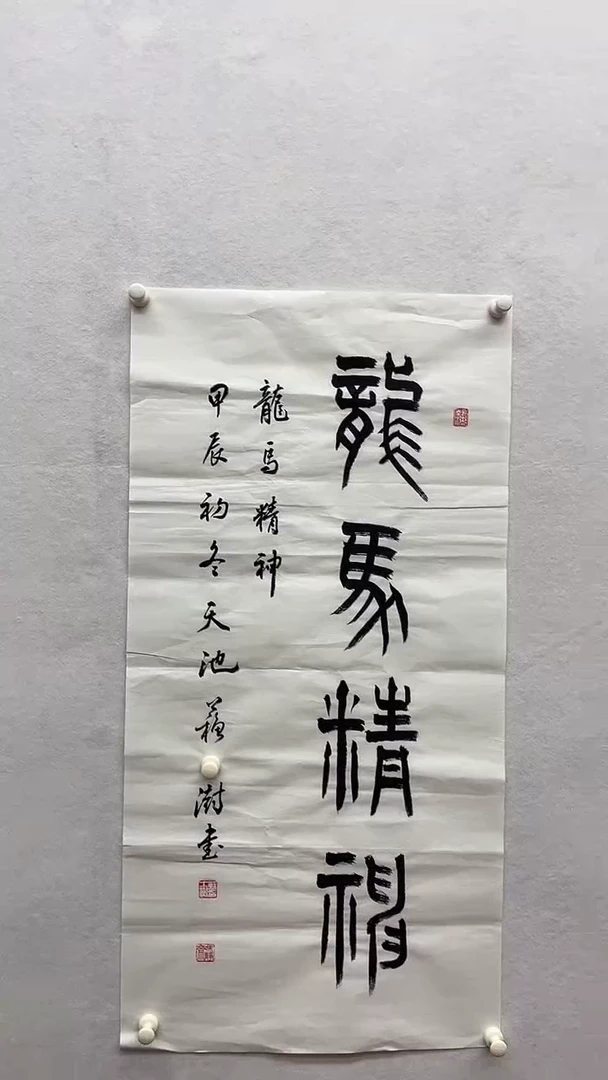 龍馬精神
龍馬精神
甲辰初冬天池蘇澍書